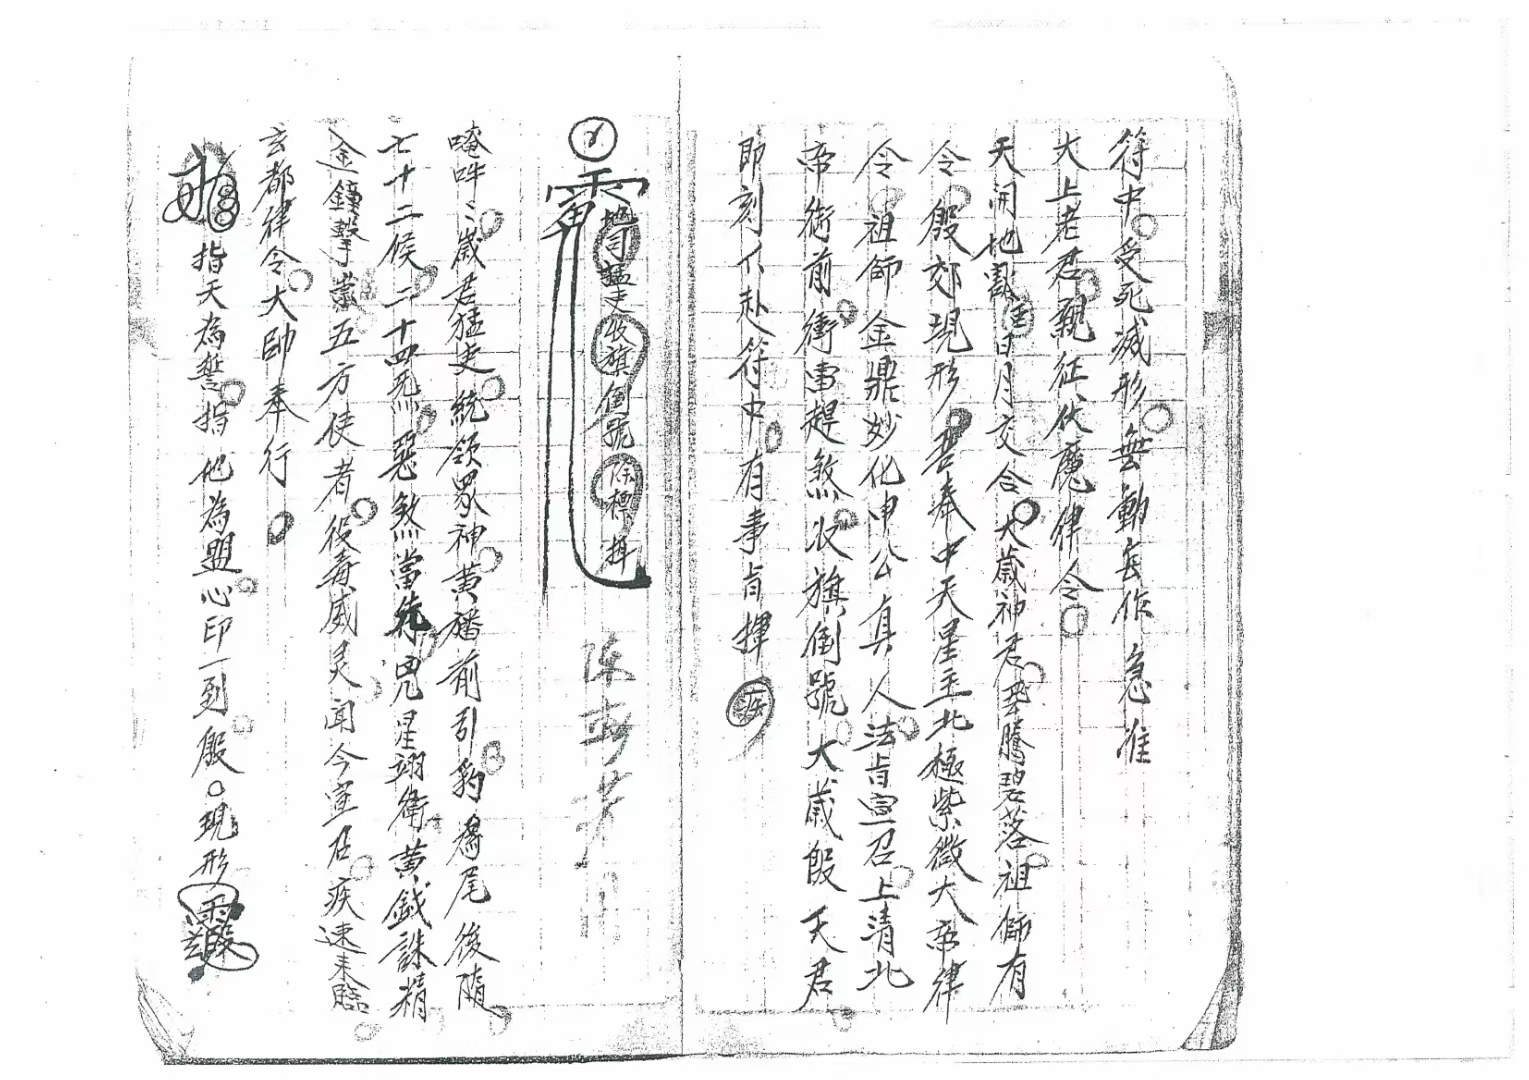 符中受死滅形無動妄作急准
太上老君親征伏魔律令
天開地日月交合大歲神君飛騰碧落祖師有
令殷郊現形君奉中天星主北極紫微大帝律
令祖師金鼎妙化申公真人法旨宣召上清北
帝衙前衝雷趕煞收旗倒號大歲殷天君
即刻降赴符中有事旨揮
地司猛吏收旗倒號除標
唵吽〻歲君猛吏統領眾神黃旛前引豹尾後隨
七十二候二十四炁惡煞當先兇星翊衛黃鉞誅精
金鐘擊祟五方使者役毒威灵聞今宣召疾速來臨
玄都律令大帥奉行
指天為誓指地為盟心印一到殷〇現形